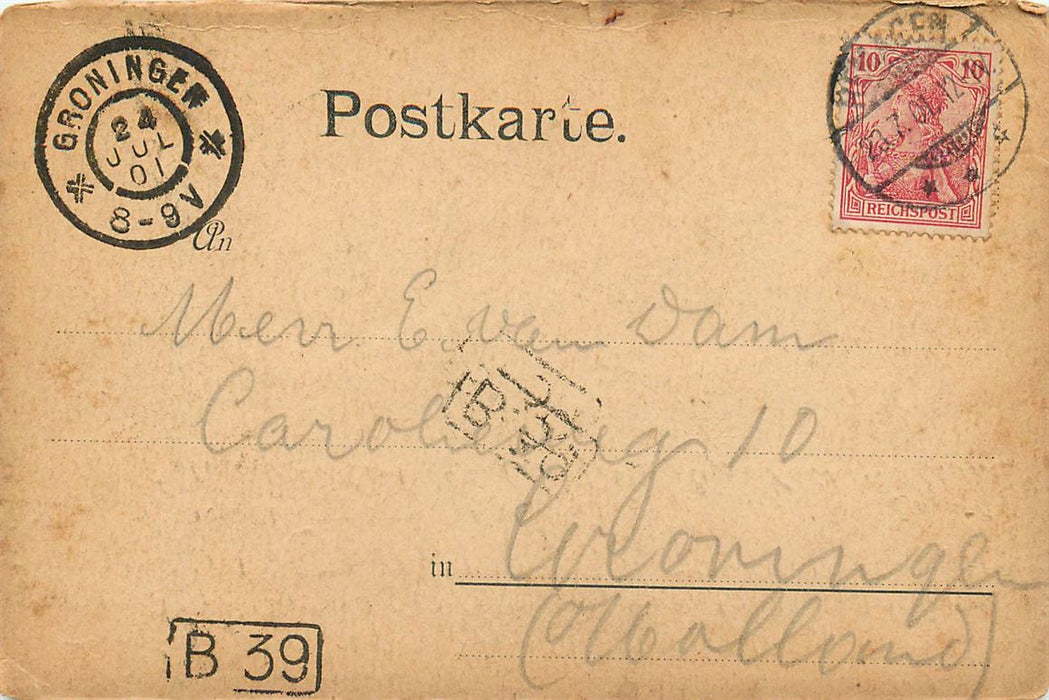 GRONINGEN
24
JUL
01
8-9V
Postkarte.
10 10
REICHSPOST
23.7.01.12
An
Herr E van Dam
Carolieweg 10
in Groningen
(Holland)
B 39